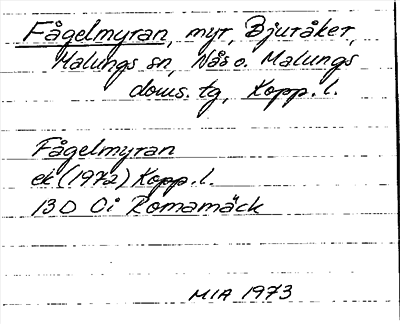 Fågelmyran, myr, Bjuråker,
Malungs sn, Nås o. Malungs
doms. tg, Kopp. l.
Fågelmyran
ek (1972) Kopp. l.
13D Ci Romamäck
MIA 1973